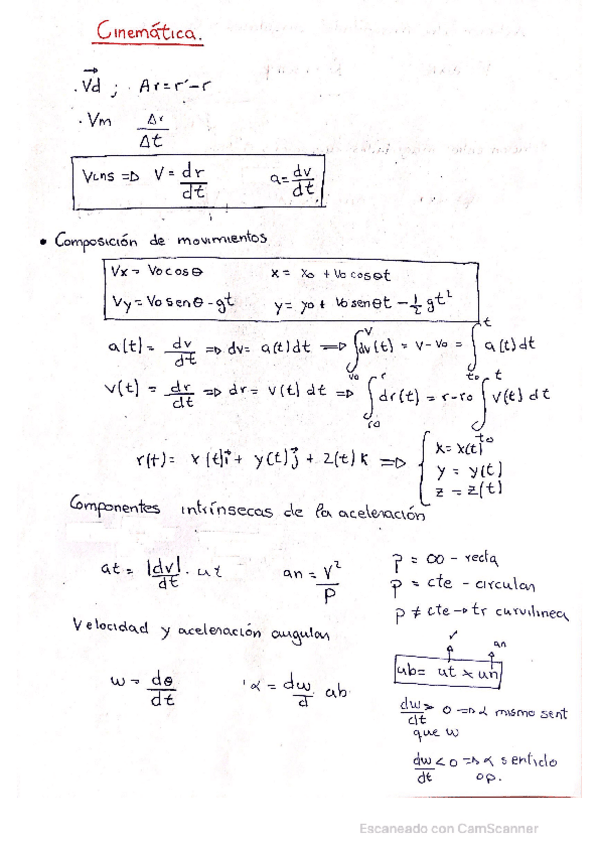 Cinemática.
. Vd ; . Ar = r' - r
. Vm Δr/Δt
VINS => V = dr/dt a = dv/dt
• Composición de movimientos
Vx = Vo cos θ x = xo + Vo cos θt
Vy = Vo sen θ - gt y = yo + Vo sen θt - 1/2 gt²
a(t) = dv/dt => dv = a(t) dt => ∫vo^v dv(t) = v - vo = ∫to^t a(t) dt
v(t) = dr/dt => dr = v(t) dt => ∫ro^r dr(t) = r - ro ∫to^t v(t) dt
r(t) = x(t)i + y(t)j + z(t)k => { x = x(t)
y = y(t)
z = z(t)
Componentes intrínsecas de la aceleración
at = |dv|/dt . ut an = v²/ρ
ρ = ∞ - recta
ρ = cte - circular
ρ ≠ cte → tr curvilinea
Velocidad y aceleración angular
w = dθ/dt α = dw/d . ub
an
ub = ut x un
dw/dt > 0 => α mismo sent
que w
dw/dt < 0 => α sentido
op.
Escaneado con CamScanner